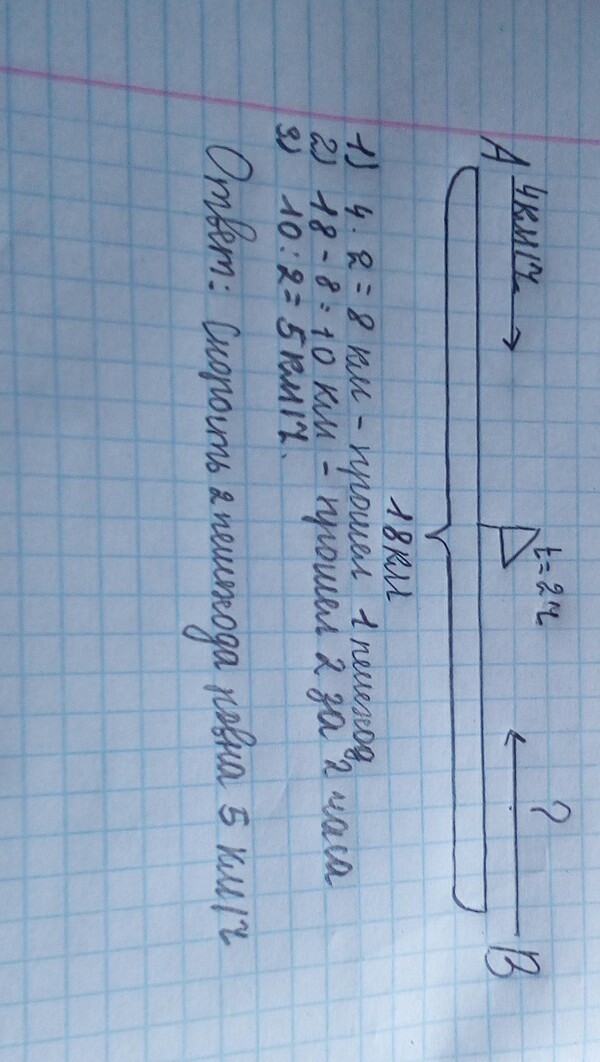 A 4км/ч t=2ч ? B
18 км
1) 4·2=8 км - прошел 1 пешеход
2) 18-8=10 км - прошел 2 за 2 часа
3) 10:2=5 км/ч.
Ответ: Скорость 2 пешехода равна 5 км/ч